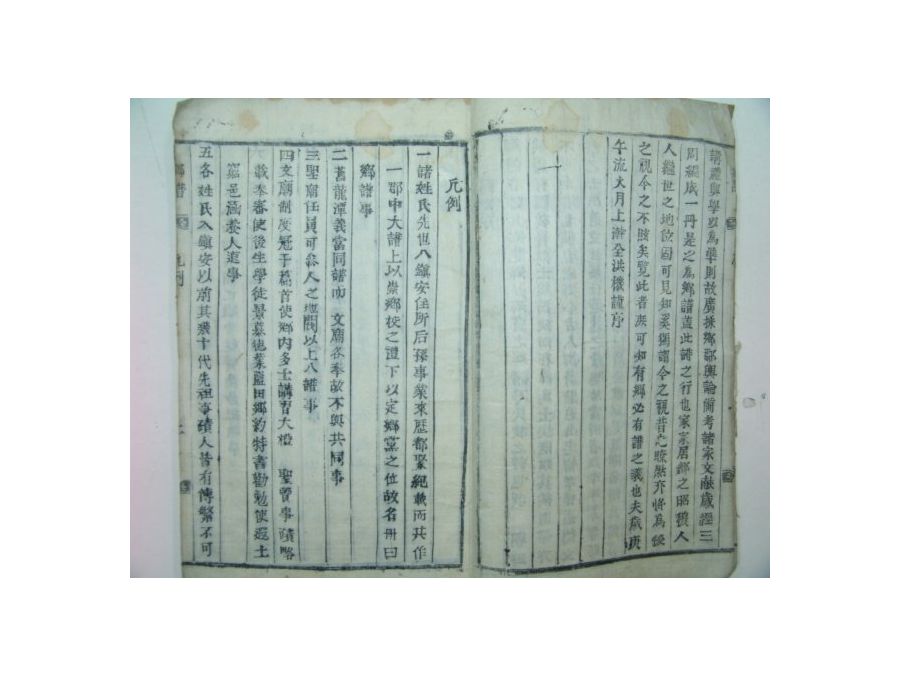 講禮興學以爲準則故廣採鄉鄰輿論備考諸家文献歲經三
周編成一冊是之爲鄉譜蓋此譜之行也家業居鄉之昭穆人
人繼世之地位固可見知奚獨謂今之視昔之瞭然亦將爲後
之視今之不賅矣覽此者庶可知有鄉必有譜之義也夫歲庚
午流火月上澣全洪機謹序
凡例
一諸姓氏先世入鎭安住所后孫事業來歷都聚紀載而其作
一郡中大譜上以崇鄉校之禮下以定鄉黨之位故名冊曰
鄉譜事
二舊龍潭義當同譜而 文廟各奉故不與共同事
三聖廟任員可叅人之地閥以上入譜事
四文廟制度冠于篇首使鄉內多士講習大楷 聖賢事蹟略
載奉審使後生學徒景慕德業藍田鄉約特書勸勉使遐土
窮邑涵養人道事
五各姓氏入鎭安以前其幾十代先祖事蹟人皆有傳繁不可
鄉譜 凡例